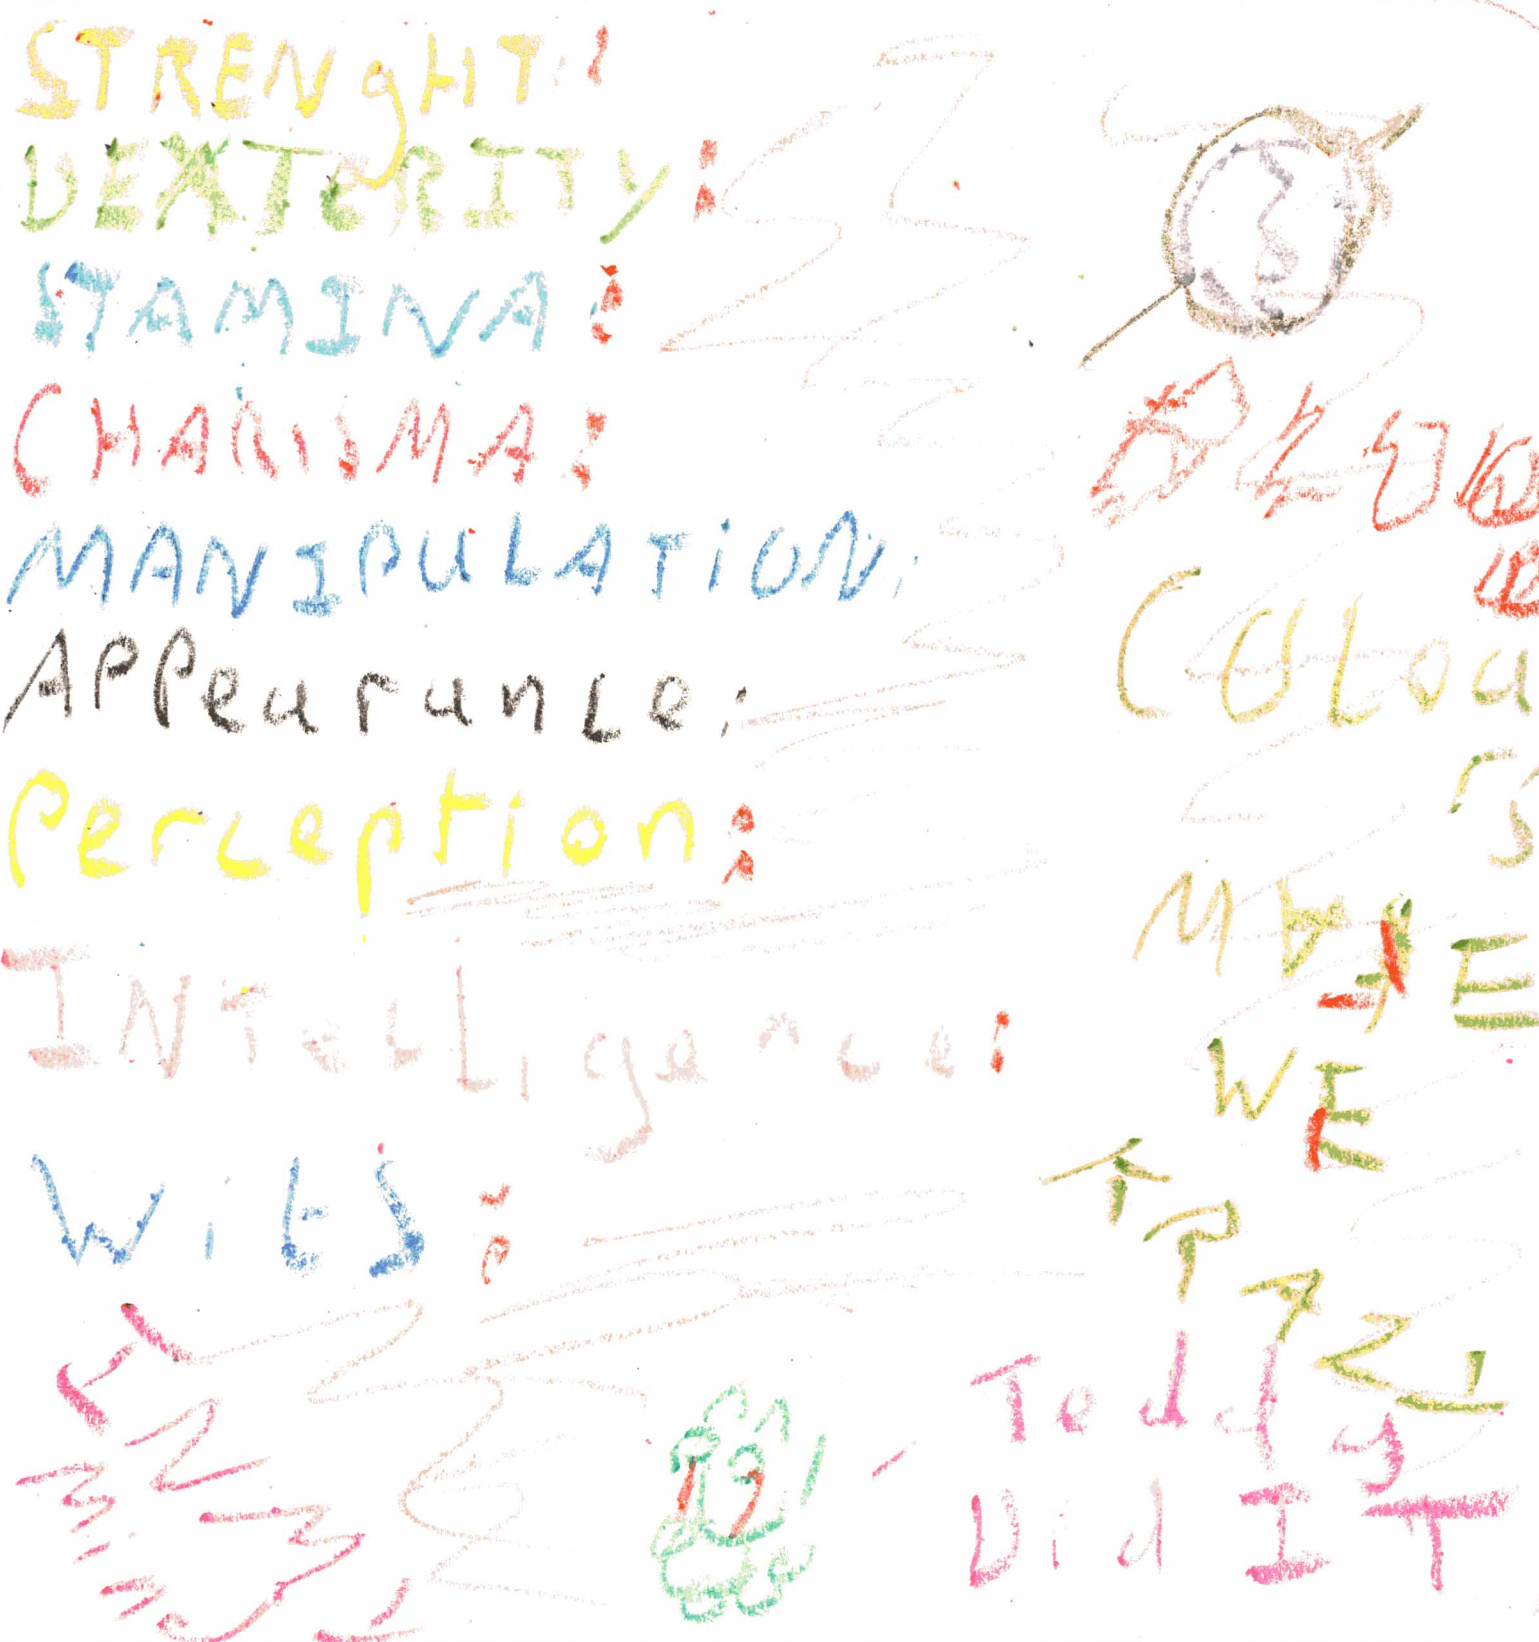 STRENgHT:
DEXTeRITy:
STAMINA:
CHARISMA:
MANIPULATION:
APPearance:
Perception:
INTelligence:
Wits:
COLOu
rs
MAKE
WE
KRAZY
Teddy
Did IT